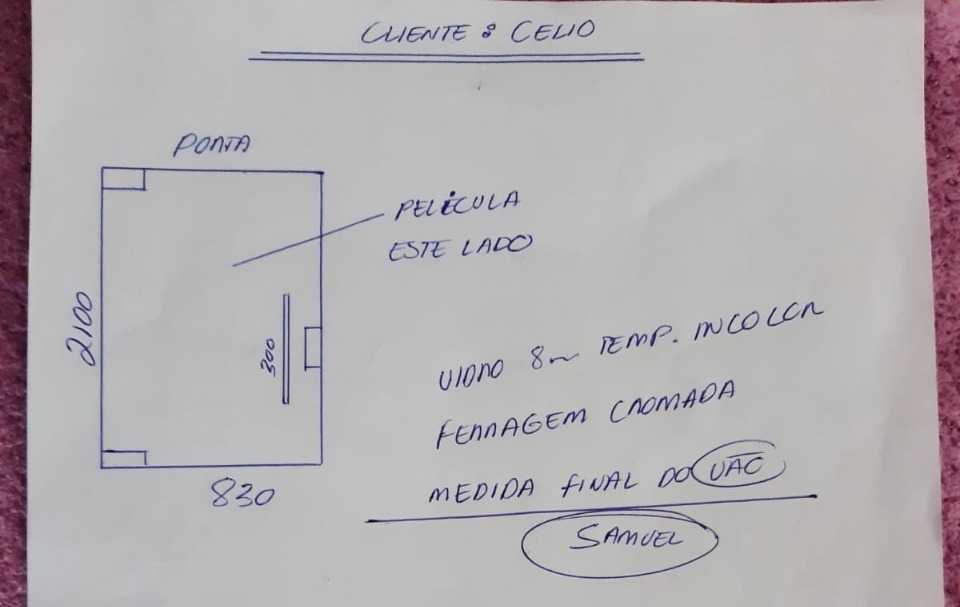 CLIENTE: CELIO
PORTA
PELÍCULA
ESTE LADO
2100
300
830
VIDRO 8m TEMP. INCOLOR
FERRAGEM CROMADA
MEDIDA FINAL DO VÃO
SAMUEL